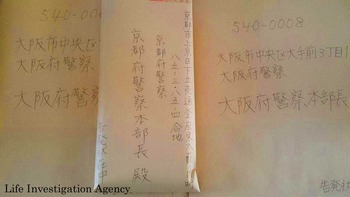 540-000
大阪市中央区
大阪府警察
大阪府警察
京都市上京区下立売通
京都府警察
京都府警察本部長 殿
540-0008
大阪市中央区大手前3丁目1
大阪府警察
大阪府警察本部長
Life Investigation Agency